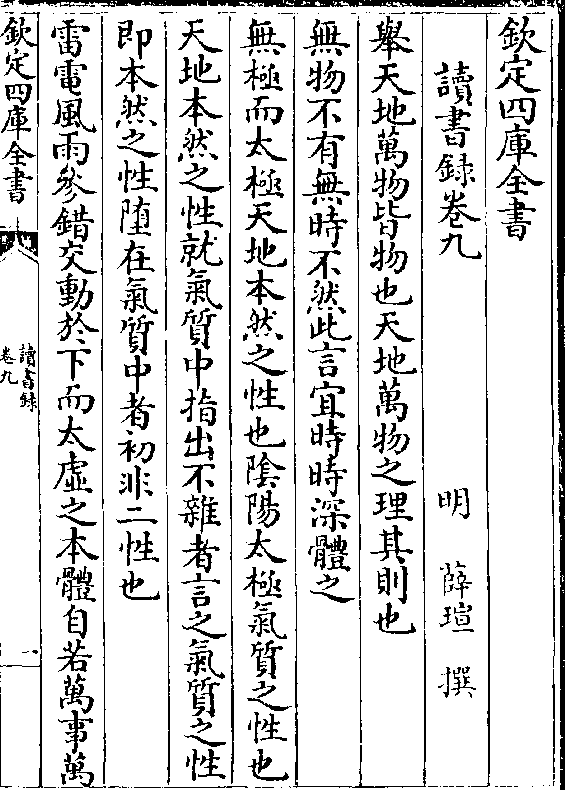 欽定四庫全書
讀書録卷九
明 薛瑄 撰
舉天地萬物皆物也天地萬物之理其則也
無物不有無時不然此言宜時時深體之
無極而太極天地本然之性也陰陽太極氣質之性也
天地本然之性就氣質中指出不雜者言之氣質之性
即本然之性墮在氣質中者初非二性也
雷電風雨參錯交動於下而太虛之本體自若萬事萬
欽定四庫全書
讀書録
卷九
一